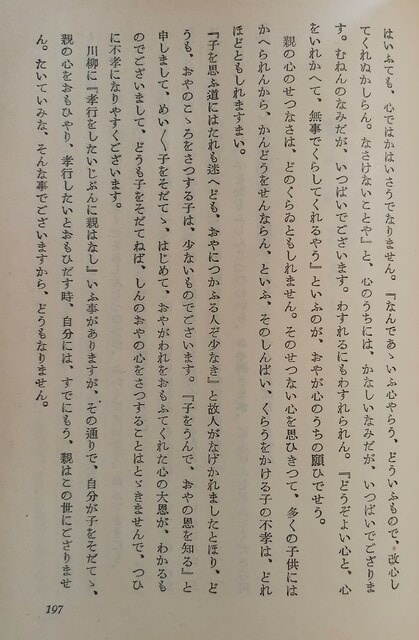 はいふても、心ではかはいさうでなりません。『なんであゝいふ心やらう、どういふもので、改心し
てくれぬかしらん。なさけないことや』と、心のうちには、かなしいなみだが、いつぱいでござりま
す。むねんのなみだが、いつぱいでございます。わすれるにもわすれられん。『どうぞよい心と、心
をいれかへて、無事でくらしてくれるやう』といふのが、おやが心のうちの願ひでせう。
親の心のせつなさは、どのくらゐともしれません。そのせつない心を思ひきつて、多くの子供には
かへられんから、かんどうをせんならん、といふ、そのしんぱい、くらうをかける子の不孝は、どれ
ほどともしれますまい。
『子を思ふ道にはたれも迷へども、おやにつかふる人ぞ少なき』と故人がなげかれましたとほり、ど
うも、おやのこゝろをさつする子は、少ないものでございます。『子をうんで、おやの恩を知る』と
申しまして、めい〱子をそだてゝ、はじめて、おやがわれをおもふてくれた心の大恩が、わかるも
のでございまして、どうも子をそだてねば、しんのおやの心をさつすることはとゞきませんで、つひ
に不孝になりやすくございます。
川柳に『孝行をしたいじぶんに親はなし』いふ事がありますが、その通りで、自分が子をそだてゝ、
親の心をおもひやり、孝行したいとおもひだす時、自分には、すでにもう、親はこの世にござりませ
ん。たいていみな、そんな事でございますから、どうもなりません。
197